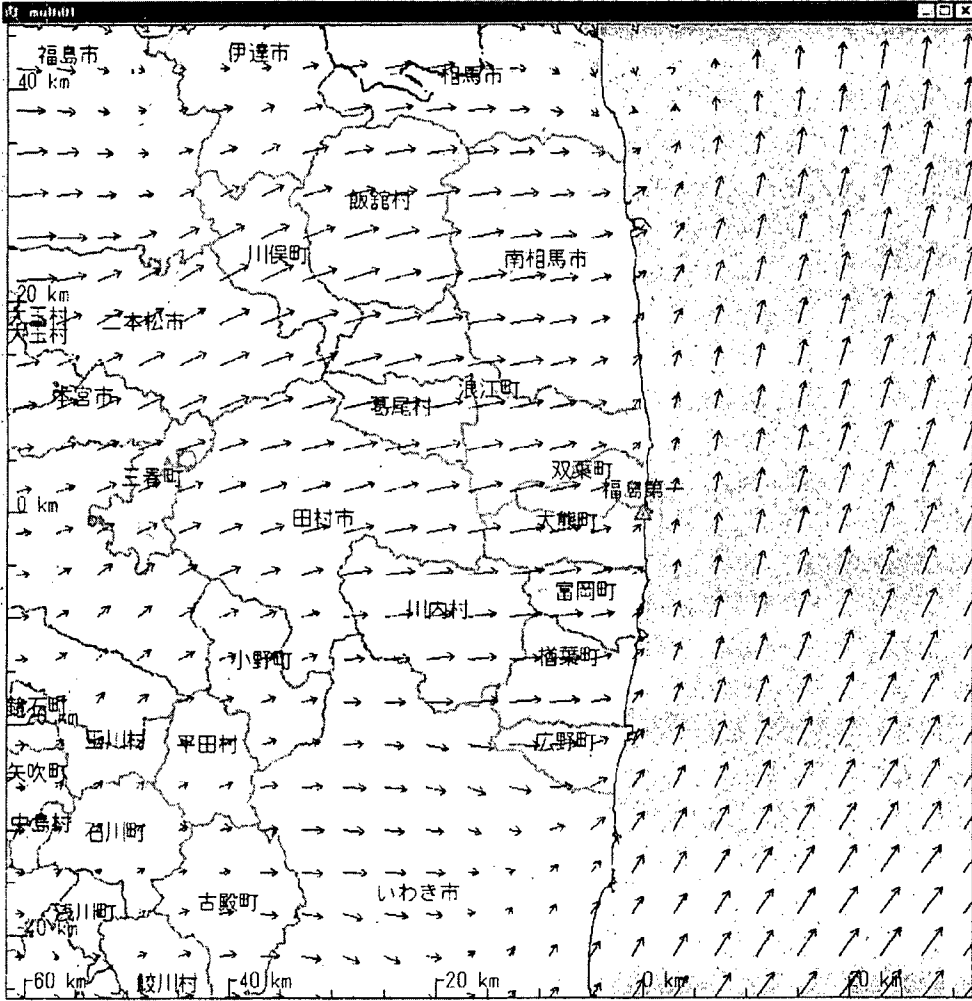 福島市
伊達市
相馬市
40 km
飯舘村
川俣町
南相馬市
20 km
大玉村
二本松市
本宮市
浪江町
葛尾村
三春町
双葉町
福島第一
0 km
田村市
大熊町
富岡町
川内村
小野町
楢葉町
鏡石町
玉川村
平田村
広野町
矢吹町
中島村
石川町
いわき市
古殿町
浅川町
鮫川村
-60 km
-40 km
-20 km
0 km
20 km